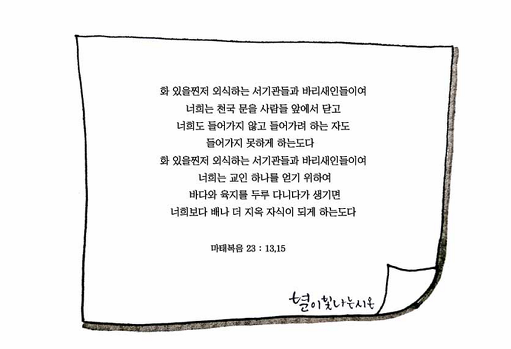 화 있을찐저 외식하는 서기관들과 바리새인들이여
너희는 천국 문을 사람들 앞에서 닫고
너희도 들어가지 않고 들어가려 하는 자도
들어가지 못하게 하는도다
화 있을찐저 외식하는 서기관들과 바리새인들이여
너희는 교인 하나를 얻기 위하여
바다와 육지를 두루 다니다가 생기면
너희보다 배나 더 지옥 자식이 되게 하는도다
마태복음 23 : 13,15
별이빛나는시온